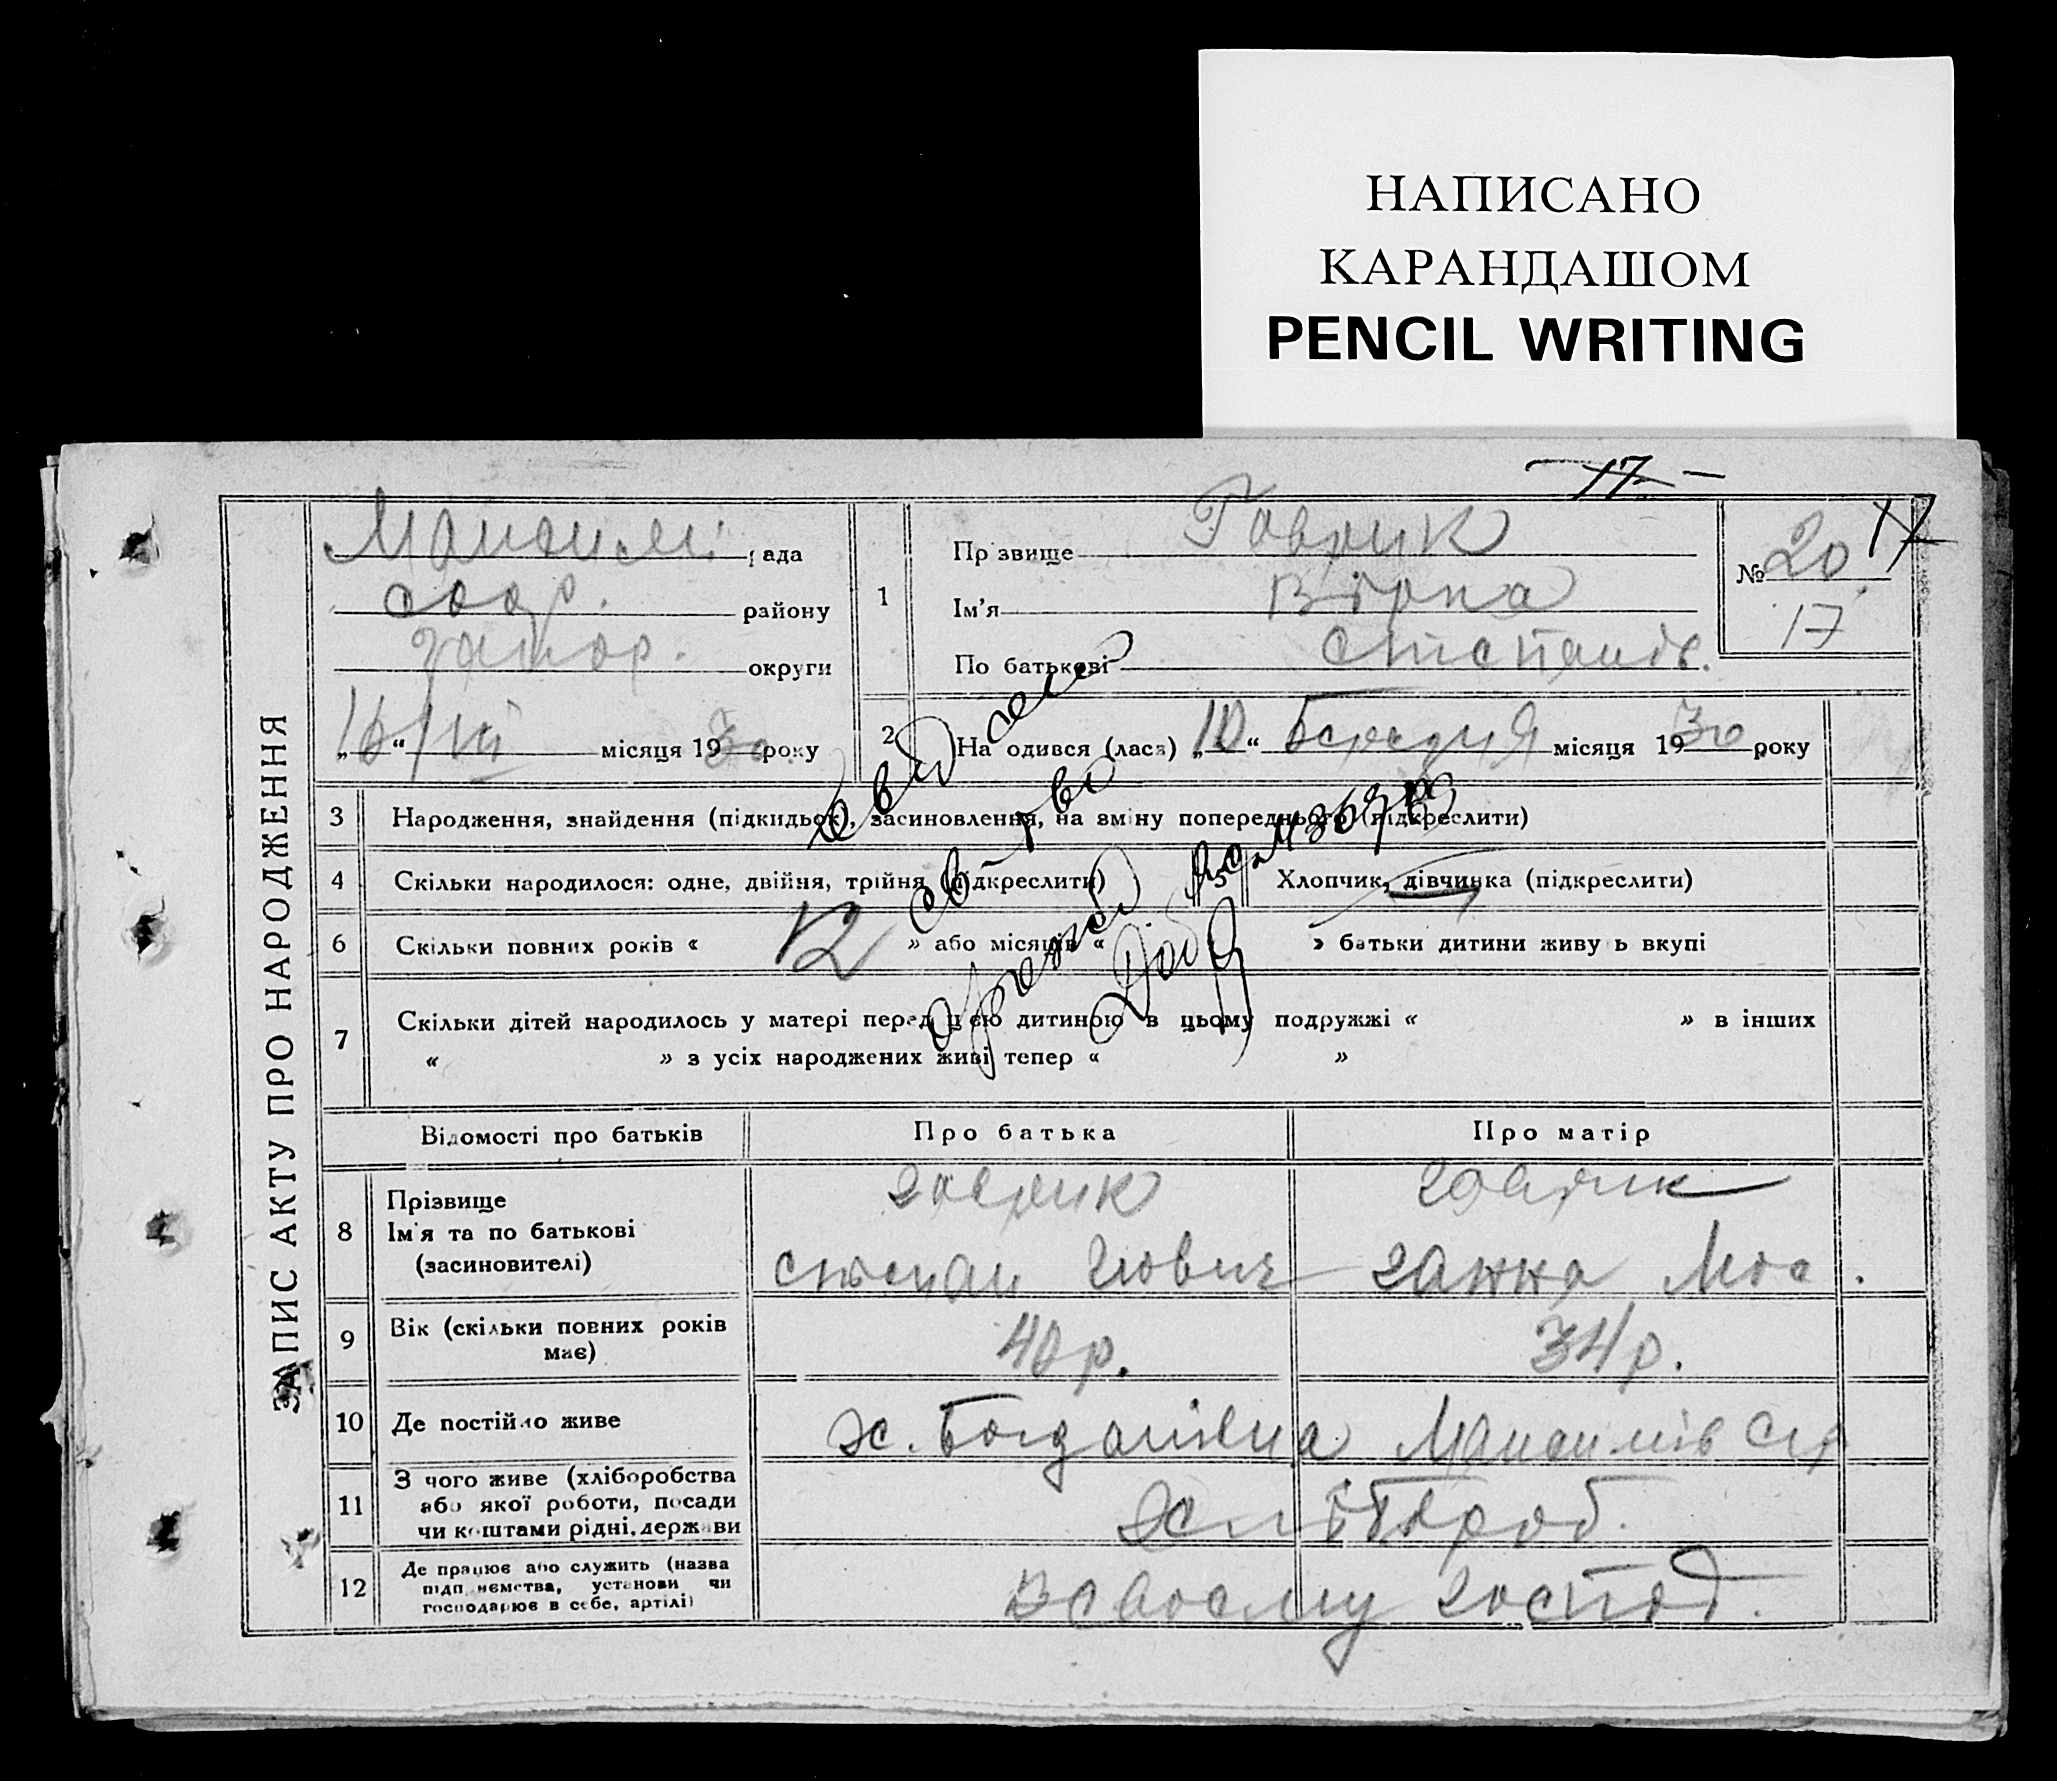 НАПИСАНО
КАРАНДАШОМ
PENCIL WRITING
17
ЗАПИС АКТУ ПРО НАРОДЖЕННЯ
рада
району
Запор. округи
„16“ місяця 1930 року
1
Прізвище Гаврик
Ім'я Вірка
По батькові Степанів.
№ 20 17
17
2 Народився (лася) „10“ Березня місяця 1930 року
3 Народження, знайдення (підкидьок), засиновлення, на зміну попереднього (підкреслити)
4 Скільки народилося: одне, двійня, трійня (підкреслити) Хлопчик, дівчинка (підкреслити)
6 Скільки повних років « 12 » або місяців « » батьки дитини живуть вкупі
7 Скільки дітей народилось у матері перед цією дитиною в цьому подружжі « » в інших
« » з усіх народжених живі тепер « »
Відомості про батьків Про батька Про матір
8 Прізвище
Ім'я та по батькові
(засиновителі)
Гаврик Гаврик
Ганна
9 Вік (скільки повних років
має)
40 р. 34 р.
10 Де постійно живе х. Богданівка
11 З чого живе (хліборобства
або якої роботи, посади
чи коштами рідні, держави
Хлібороб.
12 Де працює або служить (назва
підприємства, установи чи
господарює в себе, артілі)
В своему господ.